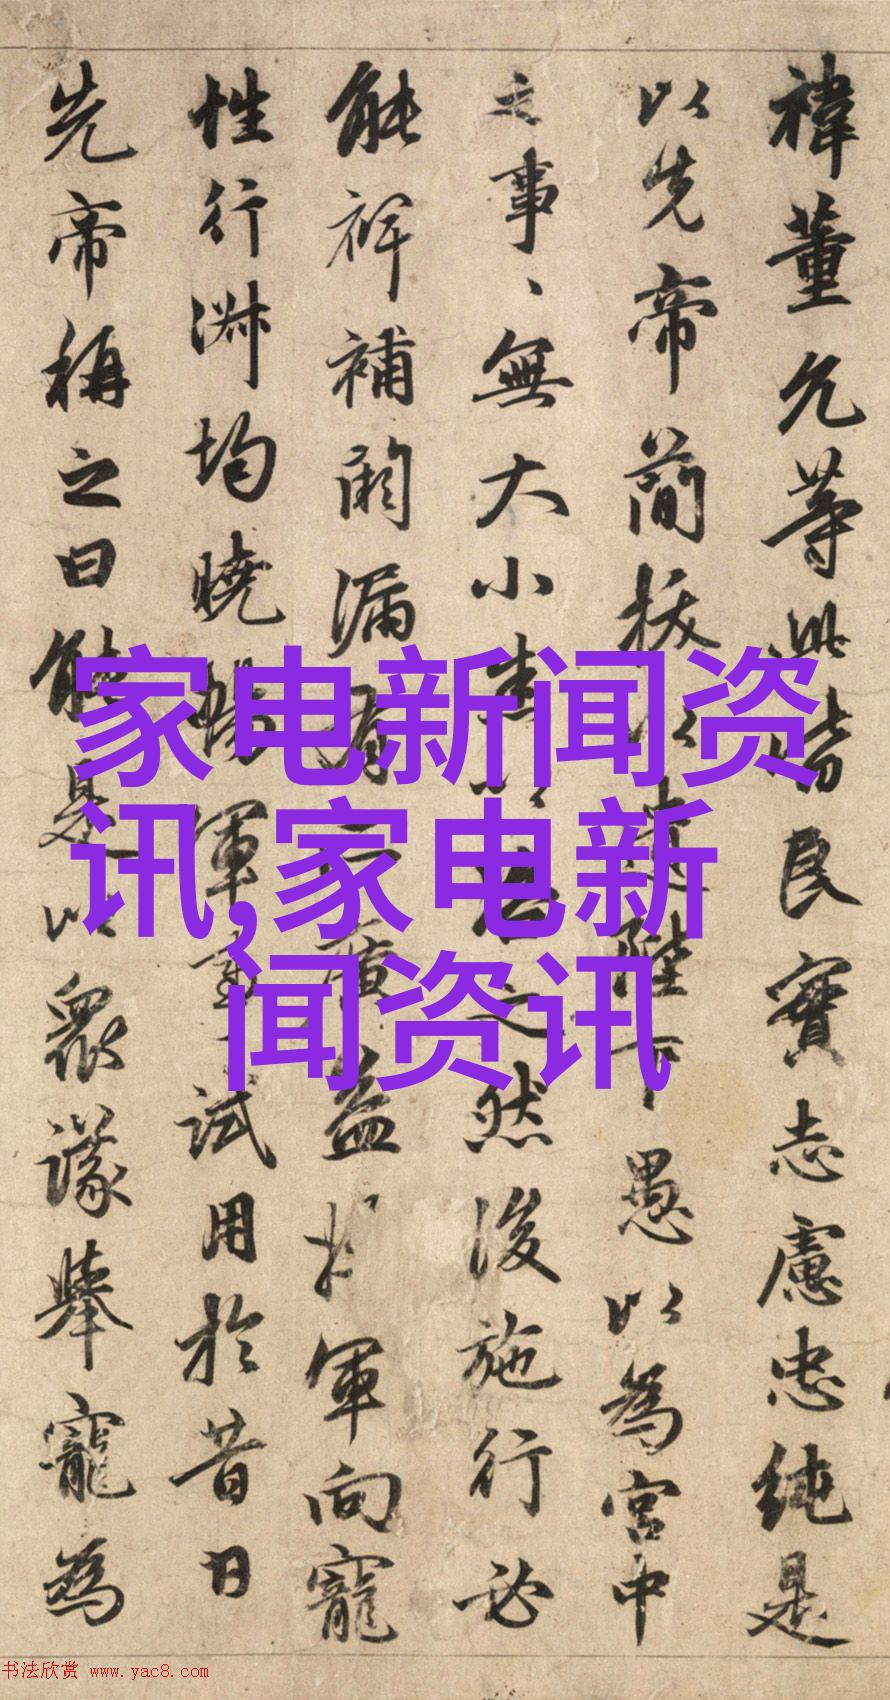 祎董允等此皆良實志慮忠純是
以先帝簡拔以遺陛下愚以為宮中
之事、無大小悉以咨之然後施行必
能裨補闕漏有所廣益將軍向寵
性行淑均曉暢軍事試用於昔日
先帝稱之曰能是以眾議舉寵為
家电新闻资
讯,家电新
闻资讯
书法欣赏 www.yac8.com